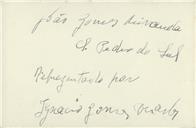 João Gomes Miranda
S. Pedro do Sul
Representado por
Ignacio Gomes